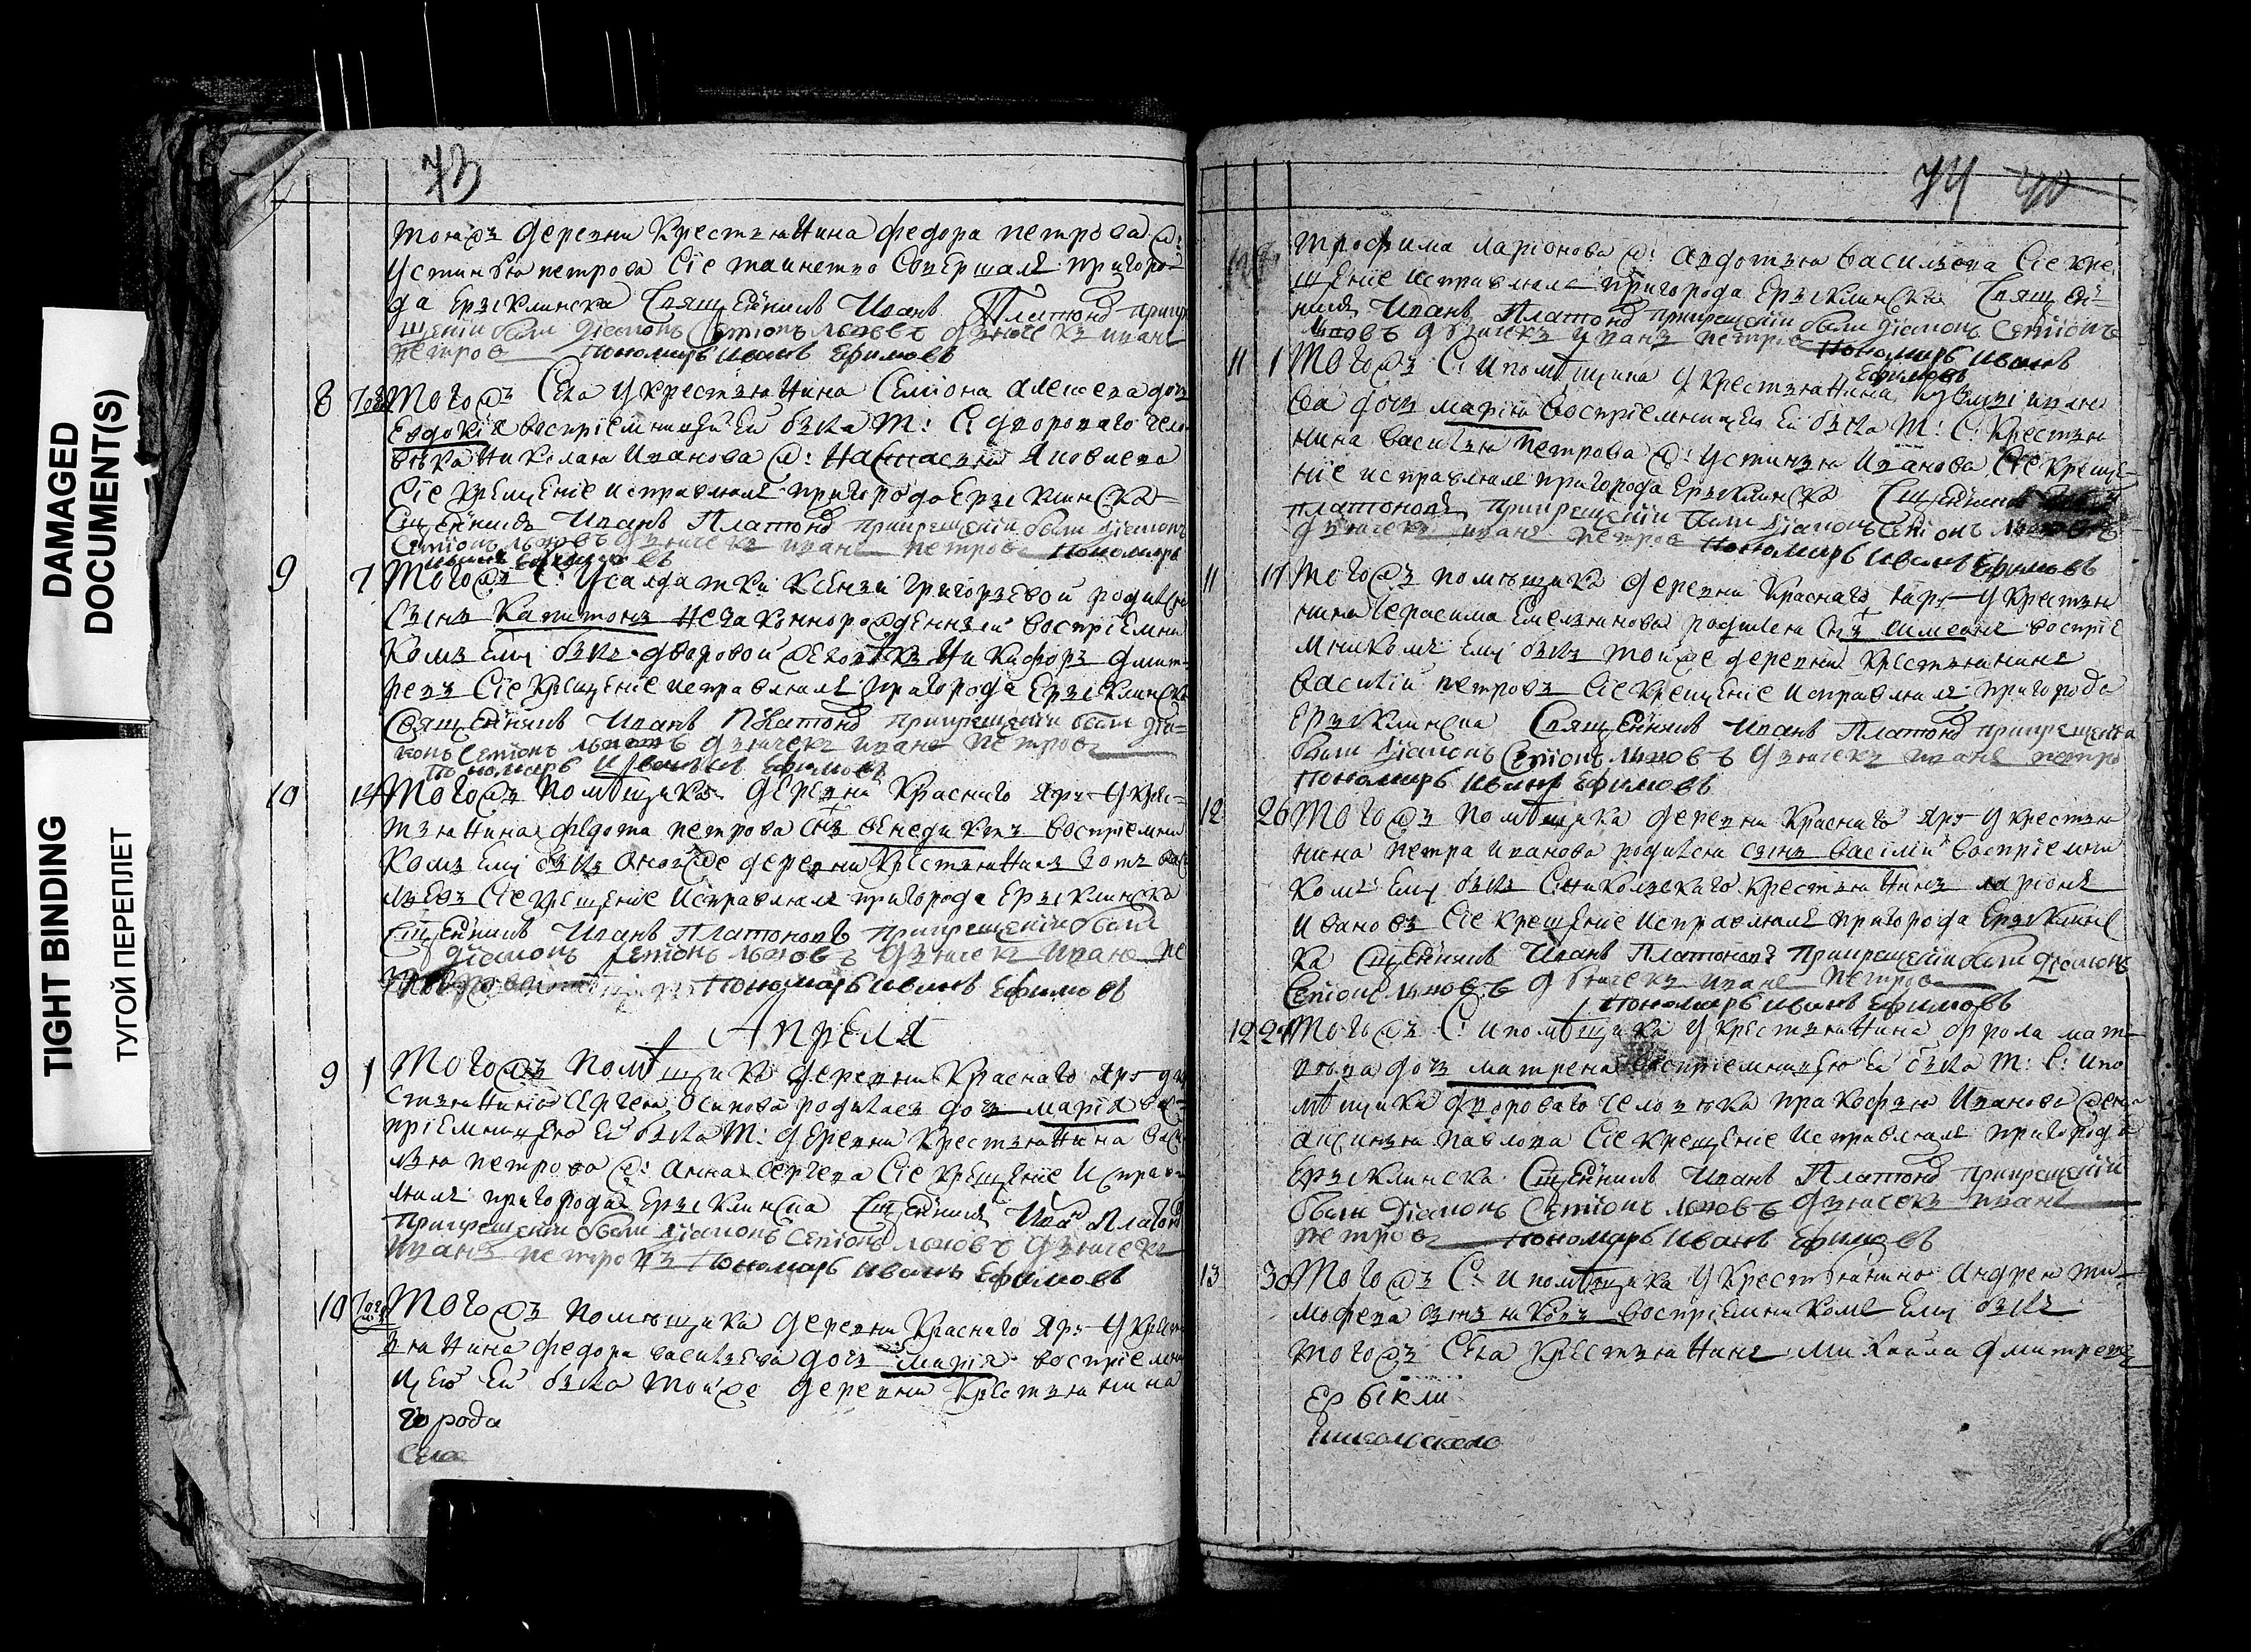 DAMAGED
DOCUMENT(S)
TIGHT BINDING
ТУГОЙ ПЕРЕПЛЕТ
73
тоя жъ деревни крестьянина федора петрова ж:
устинья петрова Сіе таинство Совершалъ пригоро-
да Ерыклинска Священникъ Иванъ Платоно
были діаконъ Семіонъ львовъ дьячекъ иванъ
петровъ пономарь иванъ Ефимовъ
8 Того жъ Села у крестьянина Симіона алексева дочь
Евдокія воспріемницей ей была т: С: двороваго чело
века николая Иванова ж: настасья Яковлева
Сіе крещеніе исправлялъ пригорода Ерыклинска
Сщенникъ Иванъ Платоно прикрещеніи были діаконъ
Семіонъ львовъ дьячекъ иванъ петровъ пономарь
иванъ Ефимовъ
9 7 Того жъ С: У салдатки Ксеньи григорьевой родился
Сынъ Капитонъ незаконнорожденный воспріемни
комъ ему былъ дваровой человекъ Никифоръ дмит-
ревъ Сіе крещеніе исправлялъ пригорода Ерыклинска
Священникъ Иванъ Платоно прикрещеніи были діа-
конъ Семіонъ львовъ дьячекъ иванъ петровъ
пономарь Иванъ Ефимовъ
10 14 Того жъ помѣщика деревни Краснаго Яру У крес-
тьянина федота петрова снъ бенедиктъ воспріемни
комъ ему былъ оной же деревни крестьянинъ
Сіе крещеніе Исправлялъ пригорода Ерыклинска
Сщенникъ Иванъ Платоновъ прикрещеніи были
діаконъ Семіонъ львовъ дьячекъ иванъ пе
пономарь Иванъ Ефимовъ
Апреля
9 1 Того жъ помѣщика деревни Краснаго Яру у кре
стьянина Сергея Осипова родилась дочь марія вос-
пріемницею ей была т: деревни крестьянина васи
лья петрова ж: анна Сергева Сіе крещеніе Исправ
лялъ пригорода Ерыклинска Сщенникъ Иванъ Платоно
прикрещеніи были діаконъ Семіонъ львовъ дьячекъ
иванъ петровъ пономарь иванъ Ефимовъ
10 Того жъ помѣщика деревни Краснаго Яру У крест
ьянина федора васильева дочь марія воспріемни
цею ей была той же деревни крестьянина
города
Села
74 40
трофима ларіонова ж: авдотья васильева Сіе кре
щеніе исправлялъ пригорода Ерыклинска Священ
никъ Иванъ Платоно прикрещеніи были діаконъ Семіонъ
львовъ дьячекъ иванъ петровъ пономарь иванъ
Ефимовъ
11 1 Того жъ С: и помѣщика у крестьянина кузмы ивано
ва дочь марія воспріемницею ей была т: С: крестья
нина василья петрова ж: устинья Иванова Сіе креще-
ніе исправлялъ пригорода Ерыклинска Сщенникъ
платоновъ прикрещеніи были діаконъ Семіонъ львовъ
дьячекъ иванъ петровъ пономарь иванъ Ефимовъ
11 17 Того жъ помѣщика деревни Краснаго яру у крестья
нина герасима Емельянова родился снъ Симеонъ воспріе
мникомъ ему былъ той же деревни крестьянинъ
василій петровъ Сіе крещеніе исправлялъ пригорода
Ерыклинска Священникъ Иванъ Платоно прикрещеніи
были діаконъ Семіонъ львовъ дьячекъ иванъ петро
пономарь иванъ Ефимовъ
12 26 Того жъ помѣщика деревни Краснаго Яру у крестья
нина петра иванова родился сынъ василій воспріемни
комъ ему былъ С: никольскаго крестьянинъ ларіонъ
Ивановъ Сіе крещеніе исправлялъ пригорода Ерыклинс
ка Сщенникъ Иванъ Платоновъ прикрещеніи были діаконъ
Семіонъ львовъ дьячекъ иванъ петровъ
пономарь иванъ Ефимовъ
12 27 Того жъ С: и помѣщика у крестьянина фрола мат-
вѣева дочь матрена воспріемницею ей была т: С: и по
мѣщика двороваго человека пракофья Иванова жена
аксинья павлова Сіе крещеніе исправлялъ пригорода
Ерыклинска Сщенникъ Иванъ Платоно прикрещеніи
были діаконъ Семіонъ львовъ дьячекъ иванъ
петровъ пономарь иванъ Ефимовъ
13 30 Того жъ С: и помѣщика у крестьянина андрея ти-
мофева воспріемникомъ ему былъ
того жъ Села крестьянинъ михайла дмитревъ
Ерыкли
никольскаго